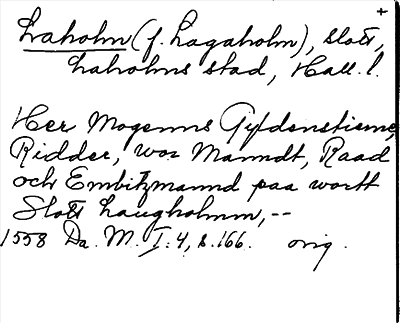 +
Laholm (f. Lagaholm), slott,
Laholms stad, Hall. l.
Her Mogenns Gyldenstierne,
Ridder, wor Manndt, Raad
och Embitzmannd paa wortt
Slott Laugholmm, --
1558 Da. M. I: 4, s. 166. orig.